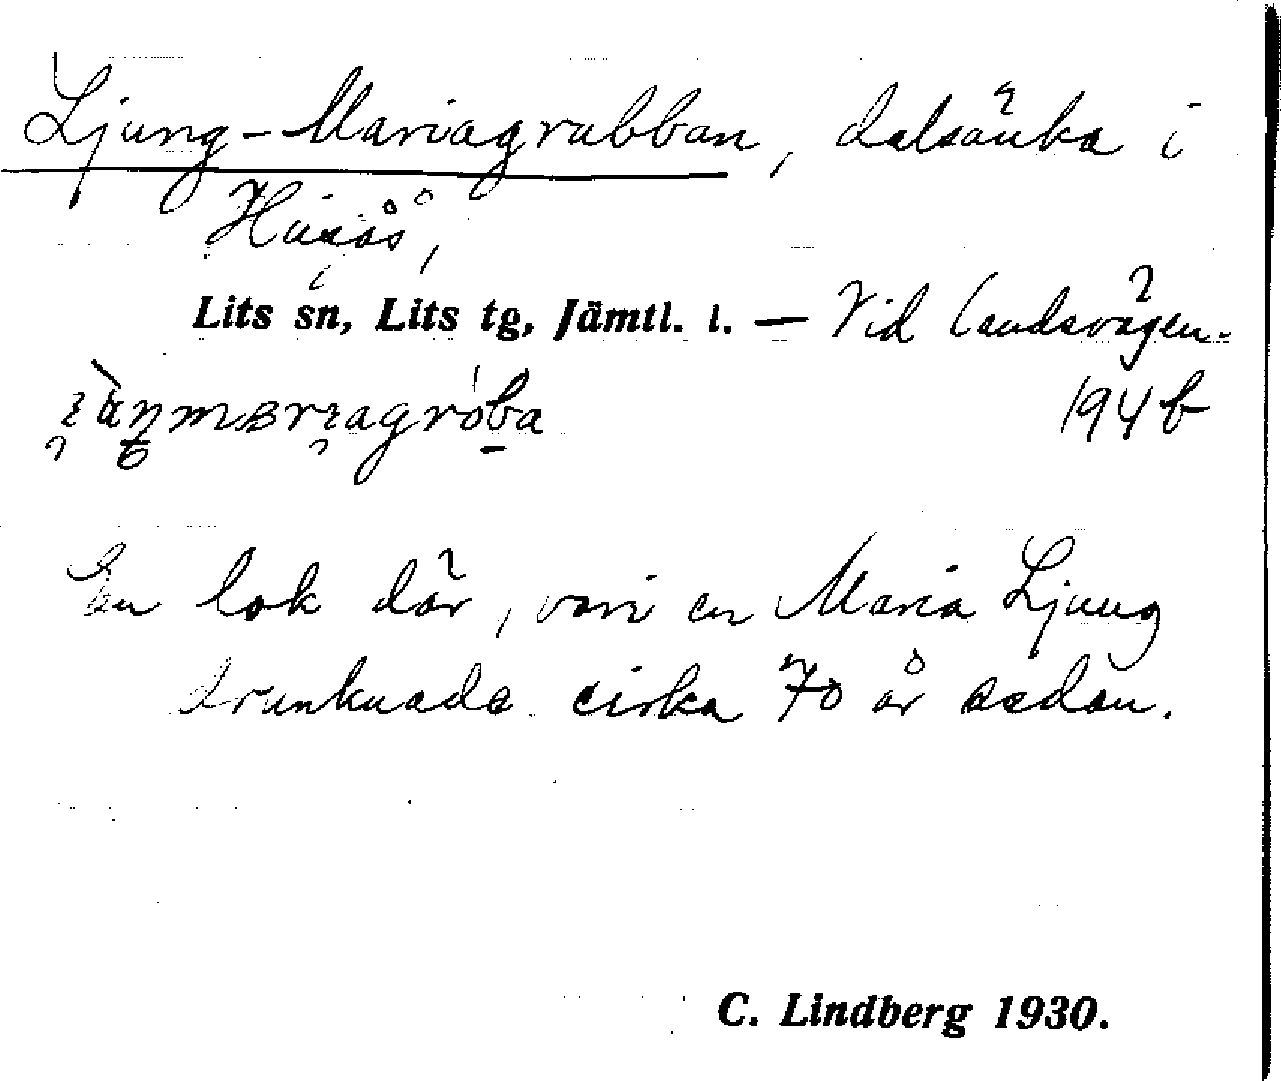 Ljung-Mariagrubban, dalsänka i
Hüsås,
Lits sn, Lits tg, Jämtl. l. — Vid landsvägen.
194 b
En lok där, vari en Maria Ljung
drunknade cirka 70 år sedan.
C. Lindberg 1930.